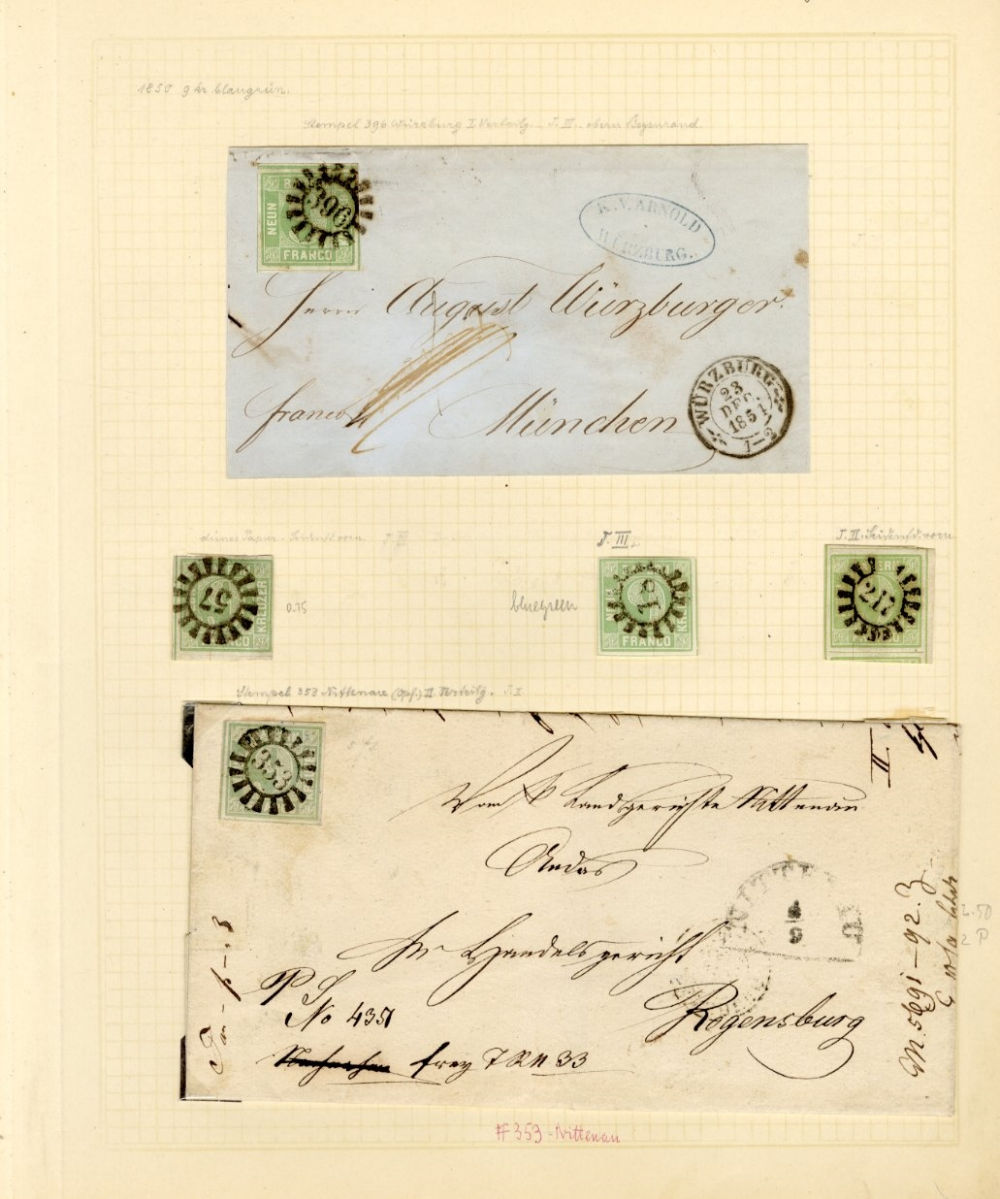 1850 9 kr blaugrün.
Stempel 396 Würzburg I Verteilg. T. II. oben Bogenrand
396
NEUN
FRANCO
K. V. ARNOLD
WÜRZBURG.
Herrn August Würzburger.
franco München
WÜRZBURG
23
DEC.
1851
1-2
T. III
T. II. Seidenfd. vorn
57
KREUZER
FRANCO
0.75
bluegreen
18
FRANCO
217
Stempel 353 Nittenau (Opf.) II Verteilg. T. I
353
II.
Vom K Landgerichte Nittenau
An das
Handelsgericht
NITTENAU
4
9
P S
No 4351
Regensburg
frey
33
M. 5691-92. 3
2.50
2 P
# 353 - Nittenau